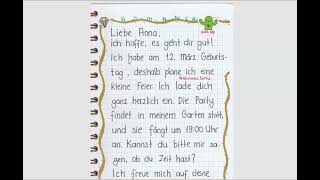 Liebe Anna,
ich hoffe, es geht dir gut!
Ich habe am 12. März Geburts-
tag, deshalb plane ich eine
kleine Feier. Ich lade dich
ganz herzlich ein. Die Party
findet in meinem Garten statt,
und sie fängt um 18:00 Uhr
an. Kannst du bitte mir sa-
gen, ob du Zeit hast?
Ich freue mich auf deine